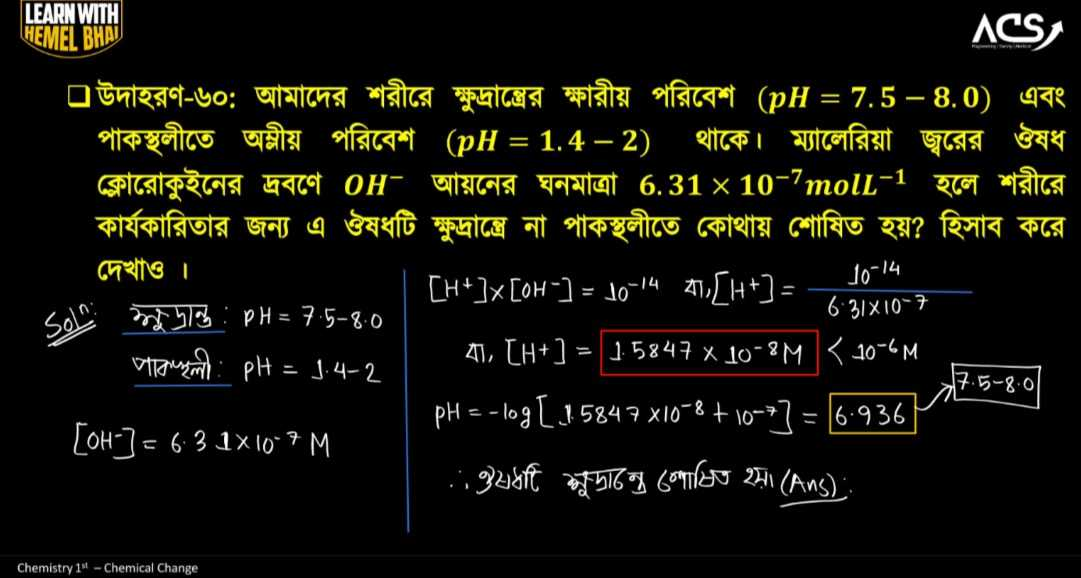 LEARN WITH
HEMEL BHAI
ACS
Engineering | Varsity | Medical
❑ উদাহরণ-৬০: আমাদের শরীরে ক্ষুদ্রান্ত্রের ক্ষারীয় পরিবেশ (pH = 7.5 – 8.0) এবং
পাকস্থলীতে অম্লীয় পরিবেশ (pH = 1.4 – 2) থাকে। ম্যালেরিয়া জ্বরের ঔষধ
ক্লোরোকুইনের দ্রবণে OH⁻ আয়নের ঘনমাত্রা 6.31 × 10⁻⁷molL⁻¹ হলে শরীরে
কার্যকারিতার জন্য এ ঔষধটি ক্ষুদ্রান্ত্রে না পাকস্থলীতে কোথায় শোষিত হয়? হিসাব করে
দেখাও ।
Solⁿ: ক্ষুদ্রান্ত্র : pH = 7.5-8.0
পাকস্থলী : pH = 1.4-2
[OH⁻] = 6.31×10⁻⁷ M
[H⁺]×[OH⁻] = 10⁻¹⁴ বা, [H⁺] = 10⁻¹⁴ / 6.31×10⁻⁷
বা, [H⁺] = 1.5847 × 10⁻⁸M < 10⁻⁶M
7.5-8.0
pH = -log[1.5847×10⁻⁸ + 10⁻⁷] = 6.936
∴ ঔষধটি ক্ষুদ্রান্ত্রে শোষিত হয়। (Ans):
Chemistry 1ˢᵗ – Chemical Change